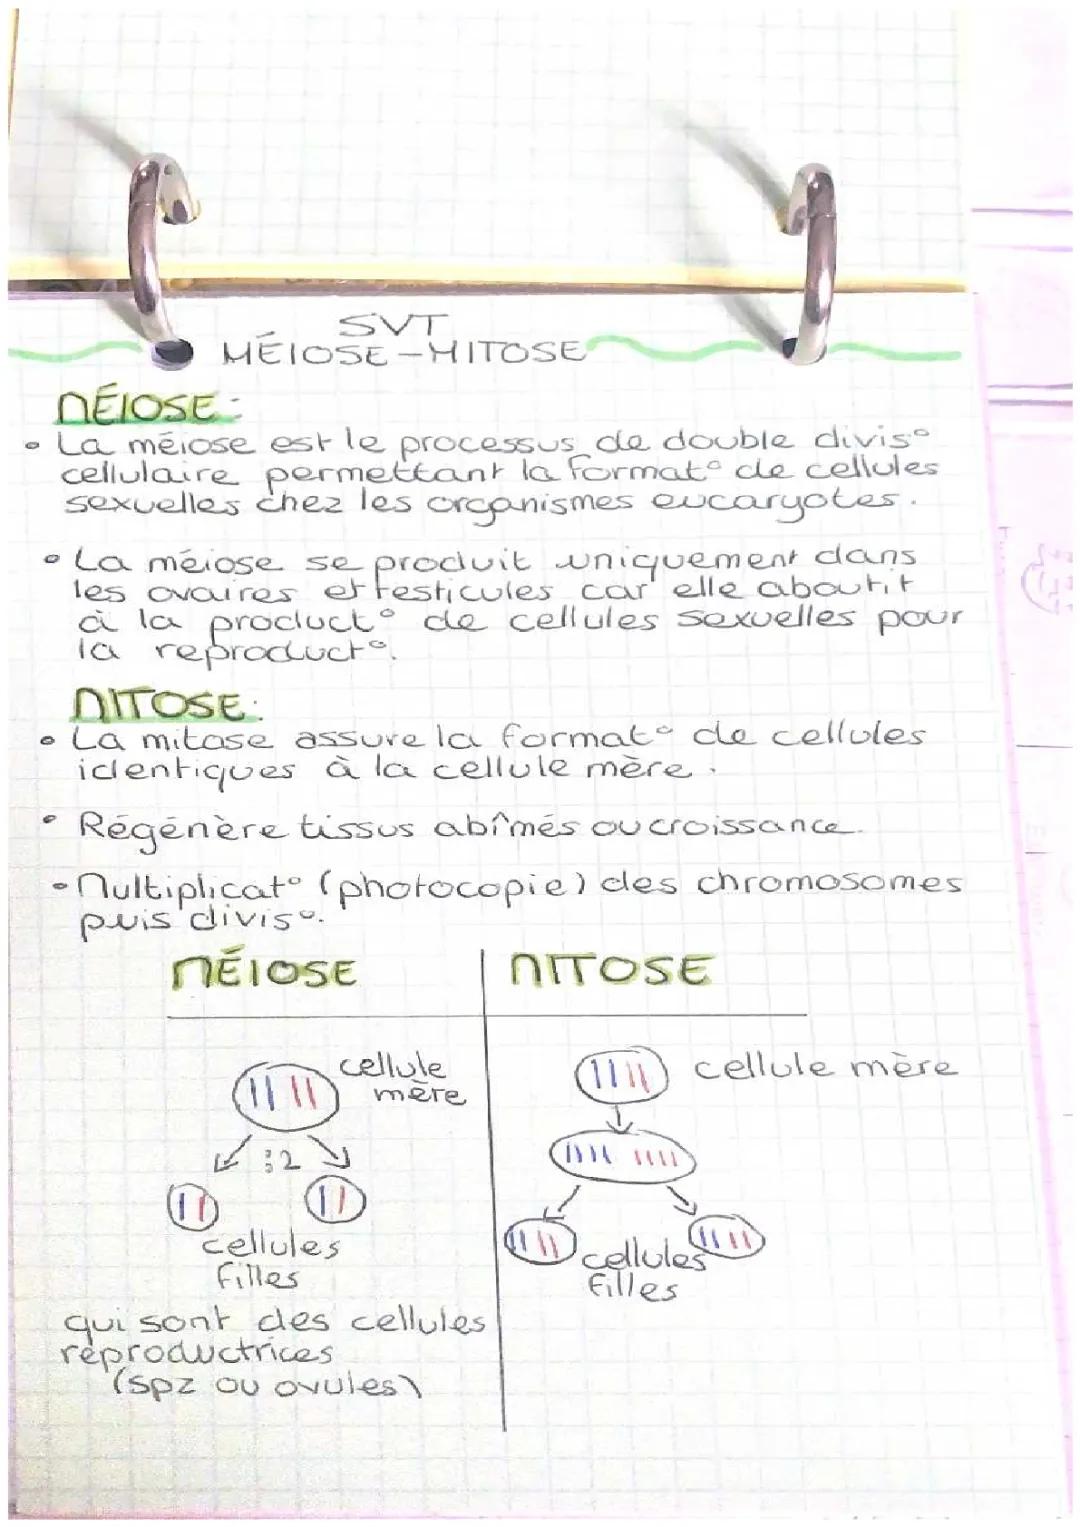 SVT
MÉIOSE - MITOSE
MÉIOSE :
• La méiose est le processus de double divis°
cellulaire permettant la format° de cellules
sexuelles chez les organismes eucaryotes.
• La méiose se produit uniquement dans
les ovaires et testicules car elle aboutit
à la product° de cellules sexuelles pour
la reproduct°.
MITOSE :
• La mitose assure la format° de cellules
identiques à la cellule mère.
• Régénère tissus abîmés ou croissance.
• Multiplicat° (photocopie) des chromosomes
puis divis°.
MÉIOSE
cellule
mère
:2
cellules
filles
qui sont des cellules
reproductrices
(spz ou ovules)
MITOSE
cellule mère
cellules
filles